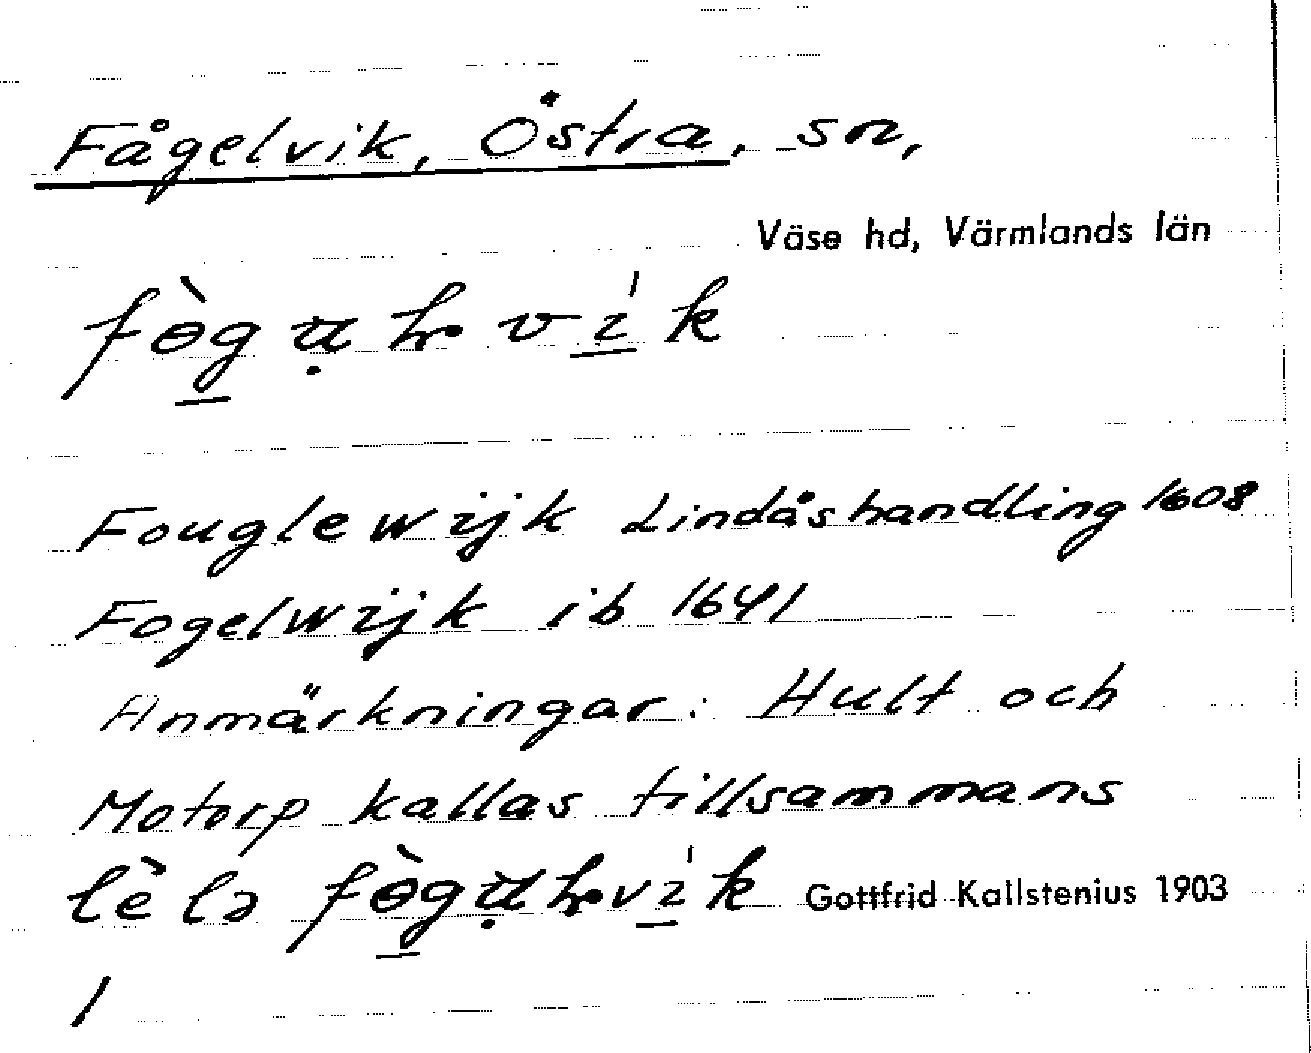 Fågelvik, Östra, sn,
Väse hd, Värmlands län
fògụḷvi̍k
Fouglewijk Lindåshandling 1608
Fogelwijk ib 1641
Anmärkningar: Hult och
Motorp kallas tillsammans
lèlə fògụḷvi̍k Gottfrid Kallstenius 1903
/